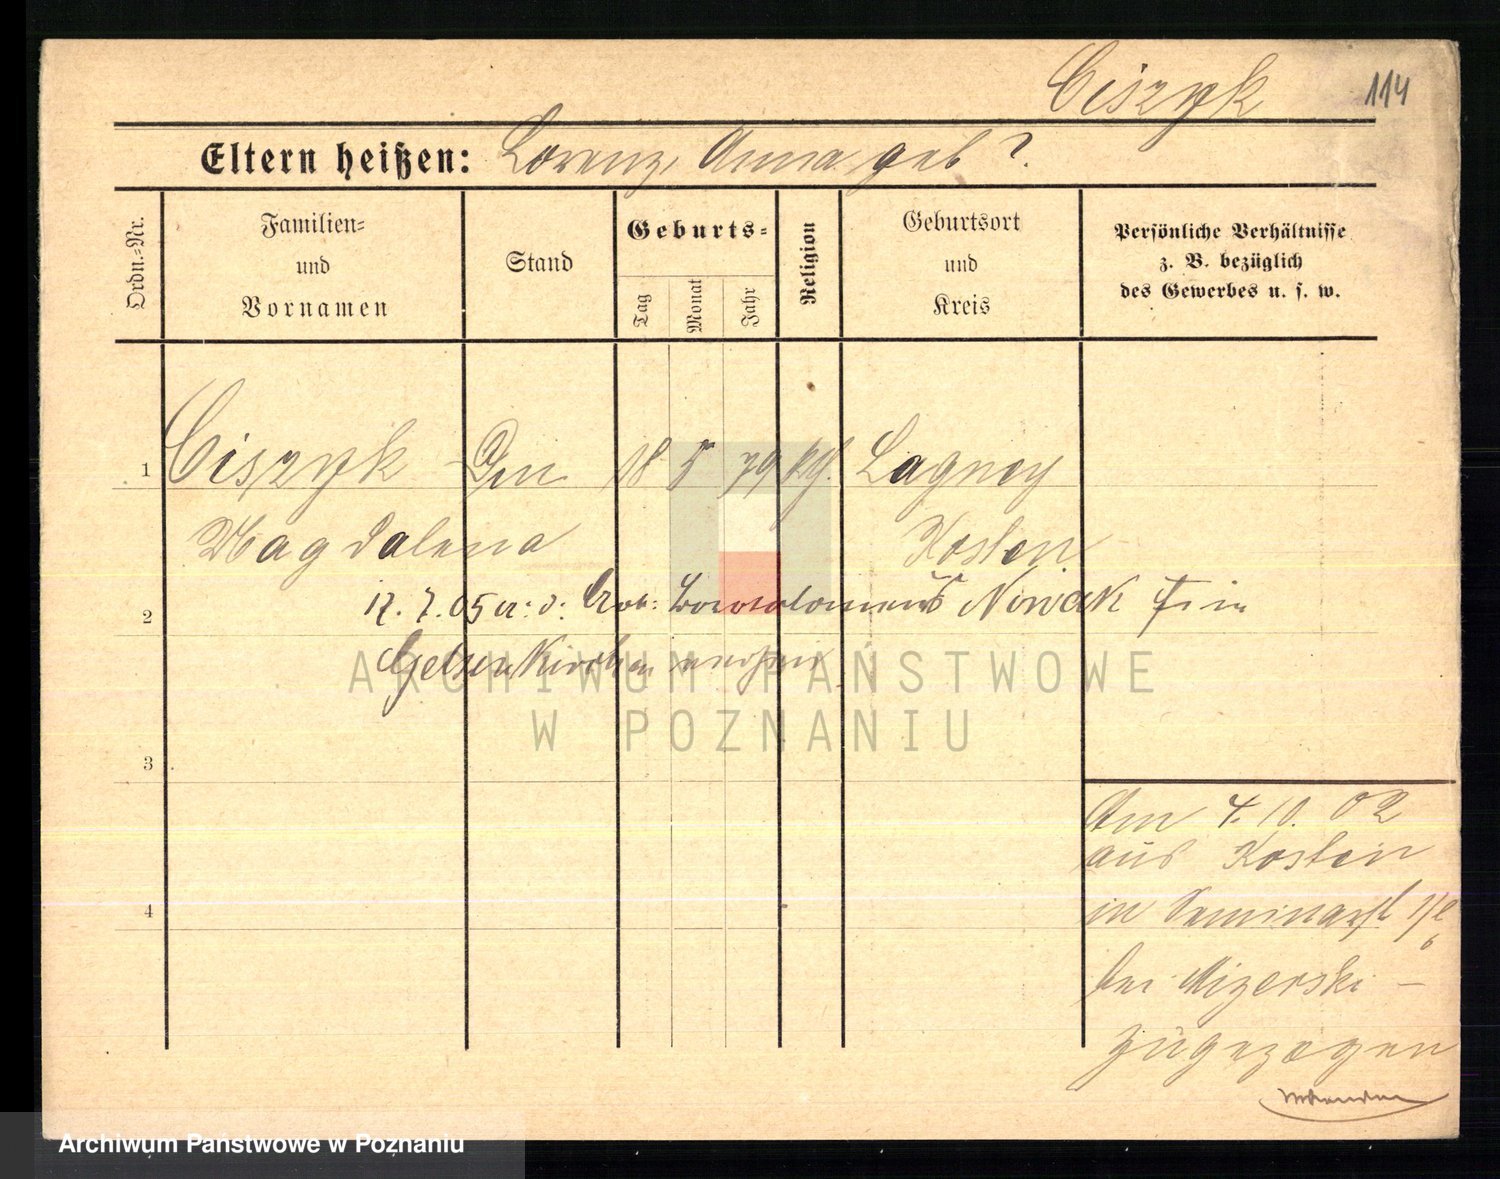 Ciszyk
114
Eltern heißen: Lorenz, Anna geb ?.
Ordn.-Nr.
Familien- und Vornamen
Stand
Geburts-
Tag
Monat
Jahr
Religion
Geburtsort und Kreis
Persönliche Verhältnisse
z. B. bezüglich
des Gewerbes u. s. w.
1 Ciszyk 18 5 79 kth.
Magdalena Kosten
2
17. 7. 05 Nowak in
Gelsenkirchen
3
4
Am 4. 10. 02
aus Kosten
in Seminarst
bei Mizerski –
zugezogen
ARCHIWUM PAŃSTWOWE
W POZNANIU
Archiwum Państwowe w Poznaniu